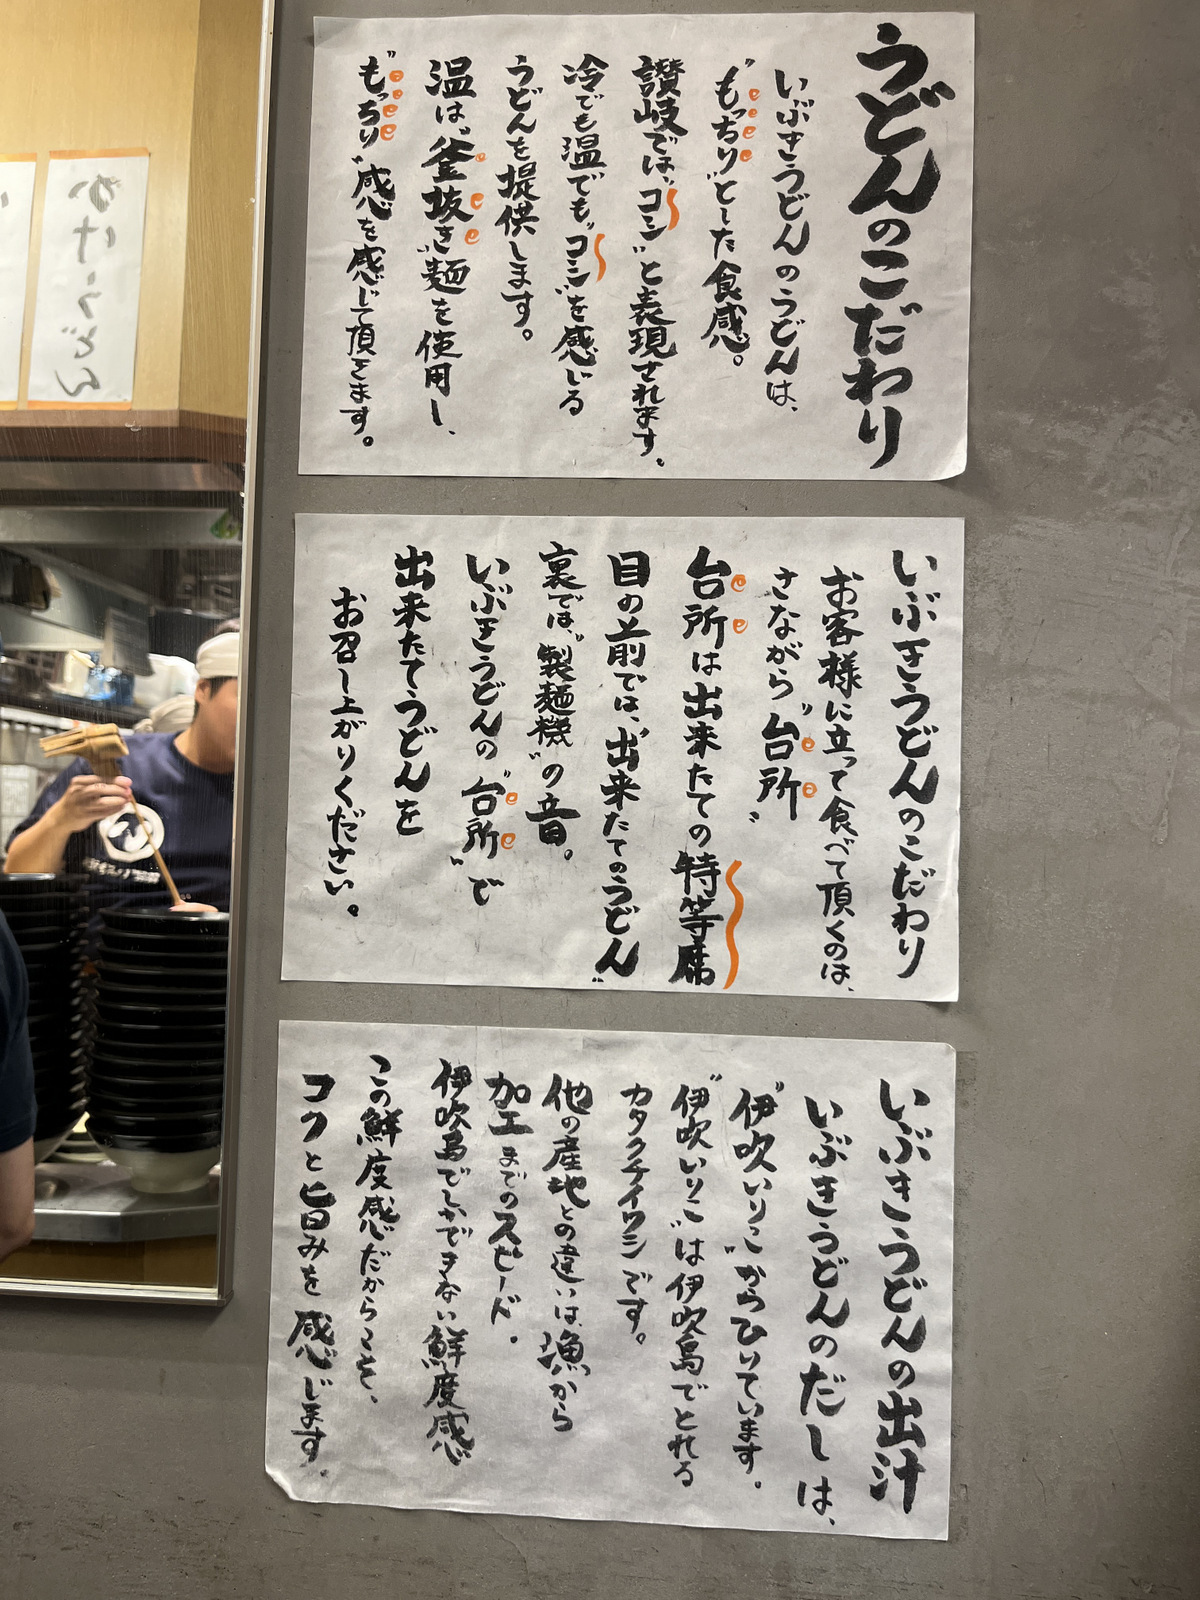 うどんのこだわり
いぶきうどんのうどんは、
"もっちり"とした食感。
讃岐では、"コシ"と表現されます。
冷でも温でも"コシ"を感じる
うどんを提供します。
温は、"釜抜き"麺を使用し、
"もっちり"感を感じて頂きます。
いぶきうどんのこだわり
お客様に立って食べて頂くのは、
さながら"台所"
台所は出来たての特等席
目の前では、"出来たてのうどん"
裏では、"製麺機"の音。
いぶきうどんの"台所"で
出来たてうどんを
お召し上がりください。
いぶきうどんの出汁
いぶきうどんのだしは、
"伊吹いりこ"からひいています。
"伊吹いりこ"は伊吹島でとれる
カタクチイワシです。
他の産地との違いは、漁から
加工までのスピード。
伊吹島でしかできない鮮度感
この鮮度感だからこそ、
コクと旨みを感じます。
かけうどん